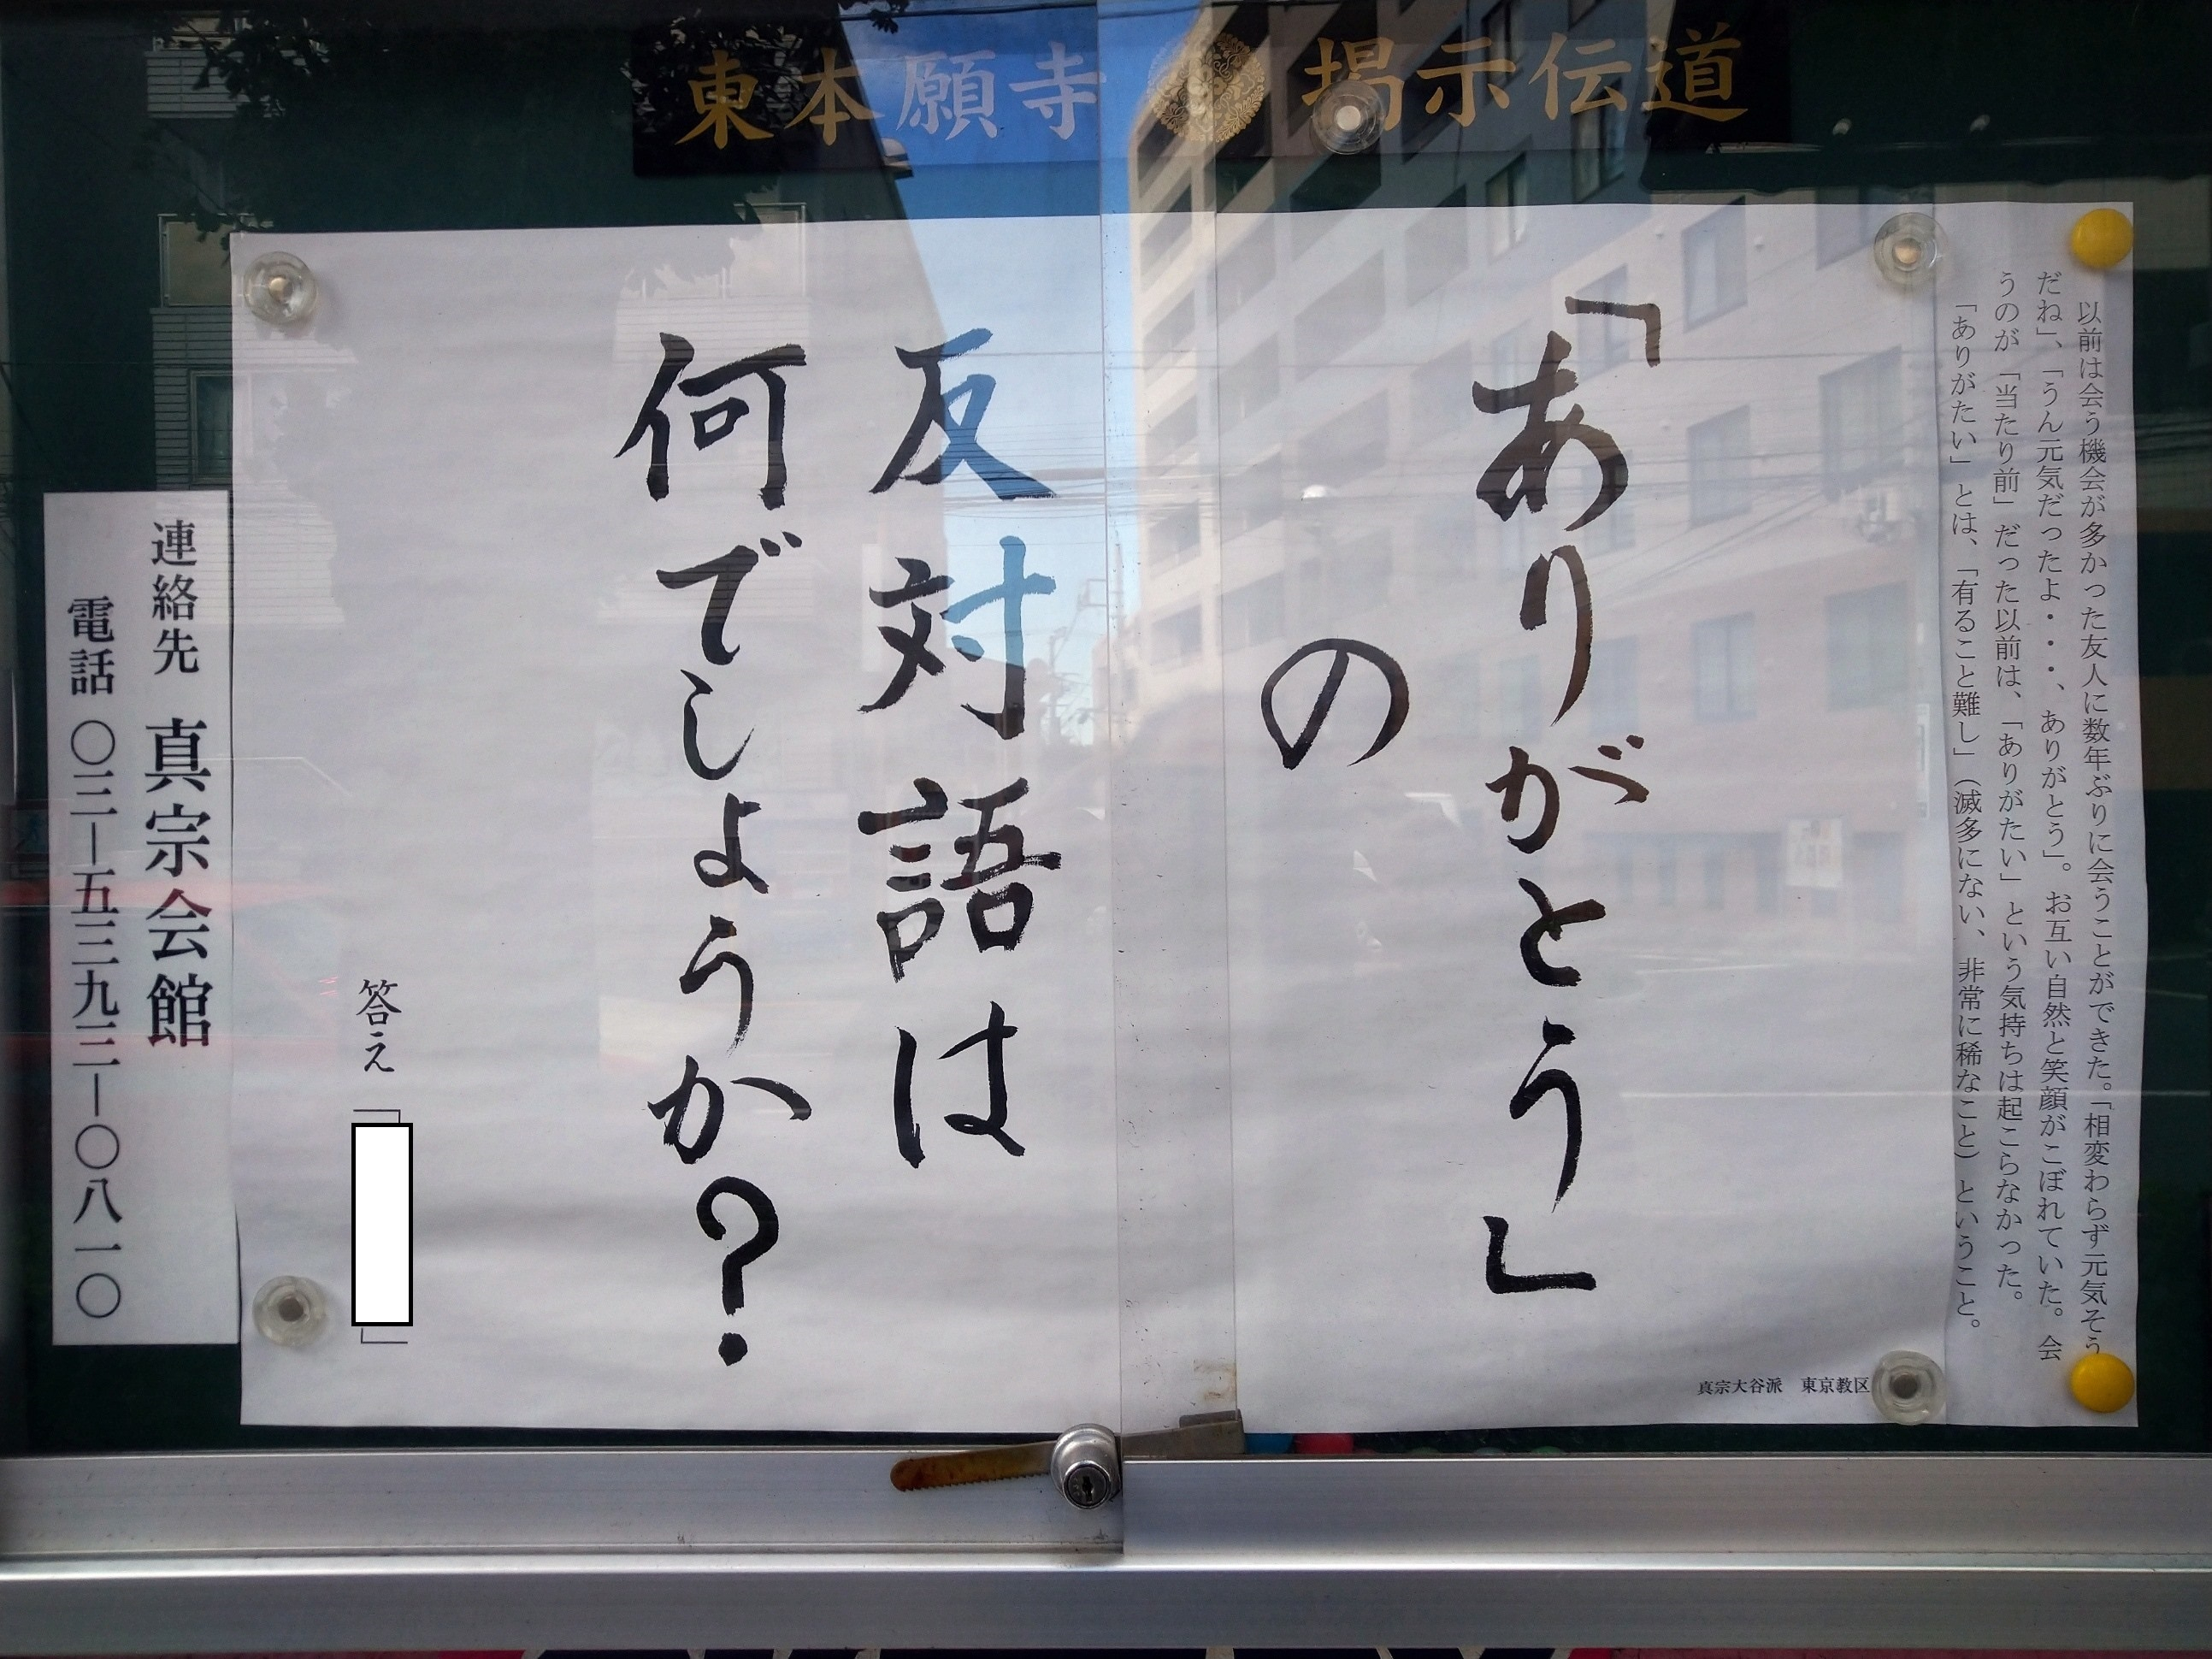 東本願寺 掲示伝道
以前は会う機会が多かった友人に数年ぶりに会うことができた。「相変わらず元気そう
だね」、「うん元気だったよ・・・、ありがとう」。お互い自然と笑顔がこぼれていた。会
うのが「当たり前」だった以前は、「ありがたい」という気持ちは起こらなかった。
「ありがたい」とは、「有ること難し」(滅多にない、非常に稀なこと)ということ。
「ありがとう」
の
反対語は
何でしょうか?
答え「 」
真宗大谷派 東京教区
連絡先 真宗会館
電話 〇三―五三九三―〇八一〇